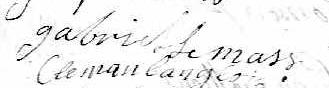 gabriel Le mass
Clemanlanges